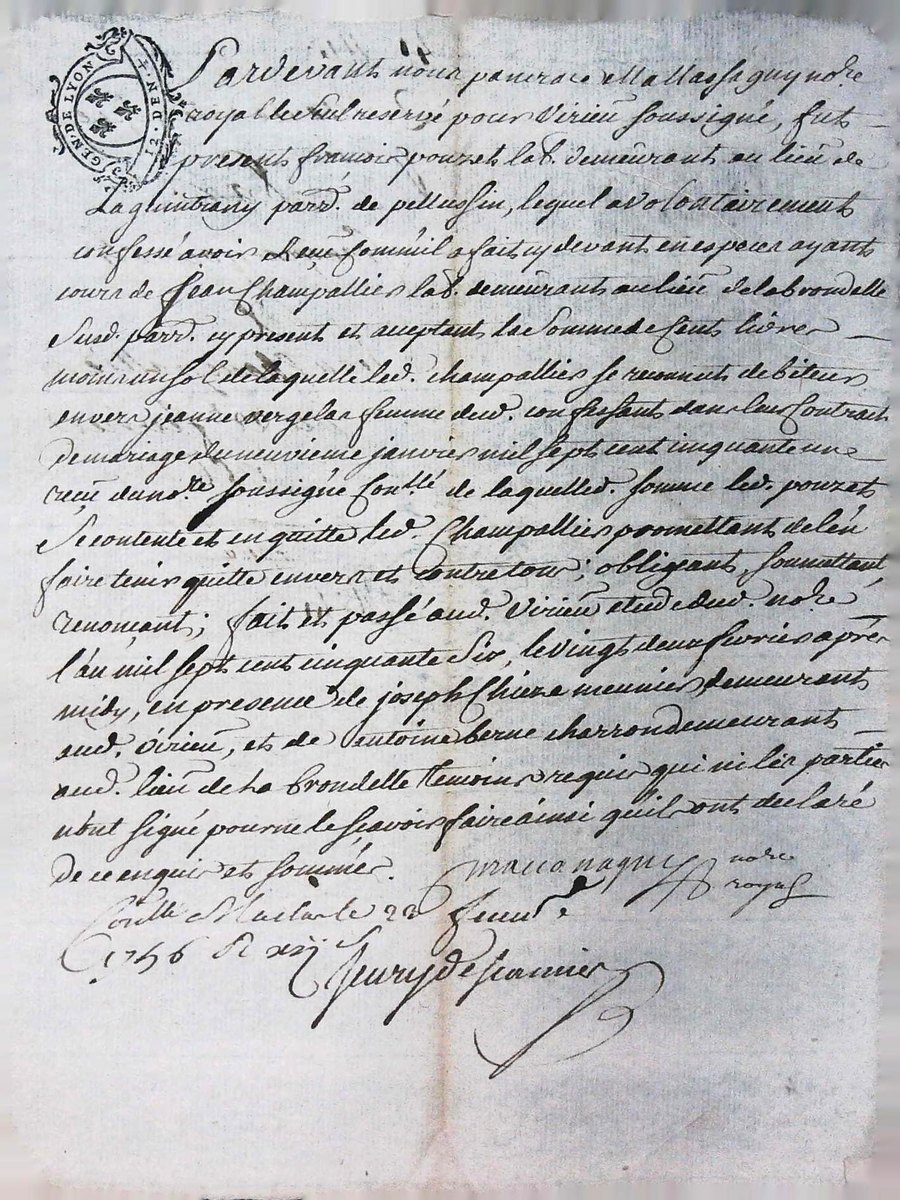 GEN·DE·LYON
12·DEN·
Pardevant nous pancrace notre
royal le seul reservé pour Virieu soussigné, fut
present francois pouzet lab. demeurant au lieu de
La guintrany parr. de pellussin, lequel a volontairement
confessé avoir Receu Comme il a fait cy devant en especes ayant
cours de Jean Champallier lab. demeurant au lieu de la brondelle
Susd. parr. cy present et acceptant la somme de Cent livres
moins un sol de laquelle led. Champallier se reconnut debiteur
envers jeanne vergelas femme dud. confessant dans leur Contrait
de mariage du neuvieme janvier mil sept cent cinquante un
reçeu du notre soussigné Conllé de laquelled. somme led. pouzet
Se contente et en quitte led. Champallier promettant de l'en
faire tenir quitte envers et contre tous; obligeant, soumettant,
renonçant; fait et passé aud. Virieu etude dud. notre
l'an mil sept cent cinquante six, le vingt deux fevrier après
midy, en presence de joseph Chieze meunier demeurant
aud. Virieu, et de antoine berne charron demeurant
aud. lieu de La brondelle temoins requis qui ni les parties
n'ont signé pour ne le scavoir faire ainsi qu'ils ont declaré
de ce enquis et sommés.
notre
royal
Conllé le 22 fevrier
1756 R